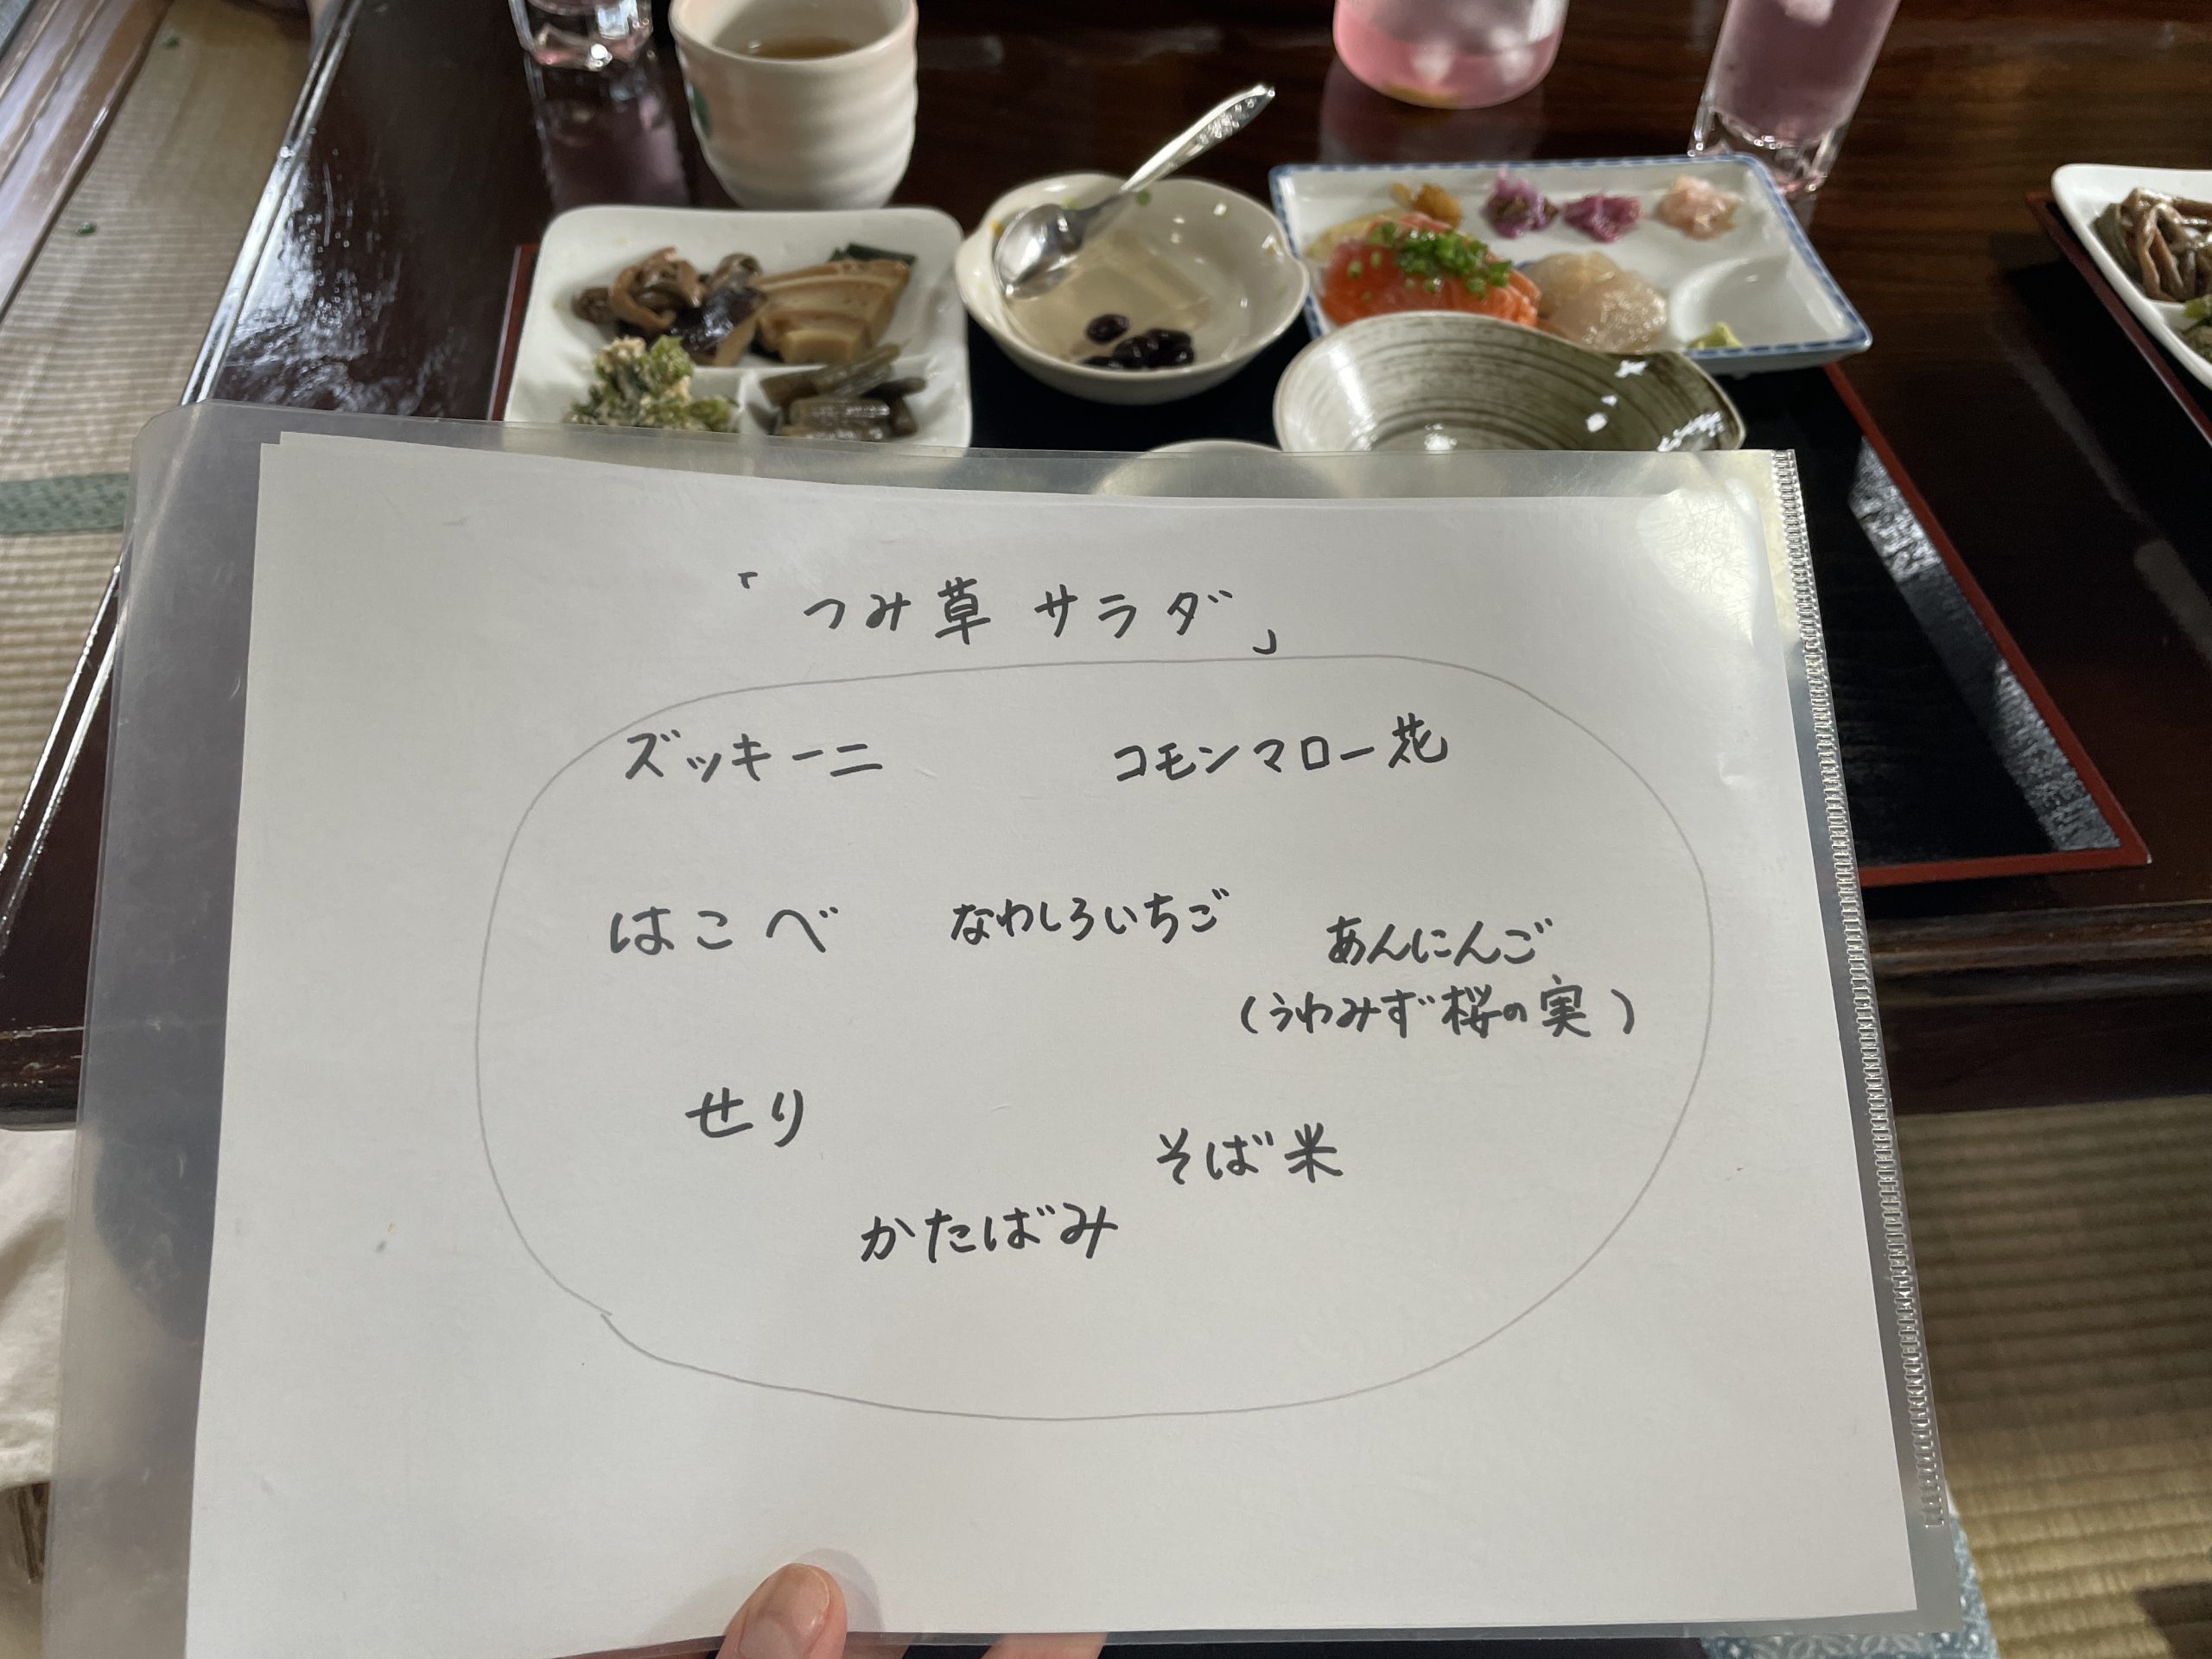 「つみ草 サラダ」
ズッキーニ
コモンマロー花
はこべ
なわしろいちご
あんにんご
(うわみず桜の実)
せり
そば米
かたばみ